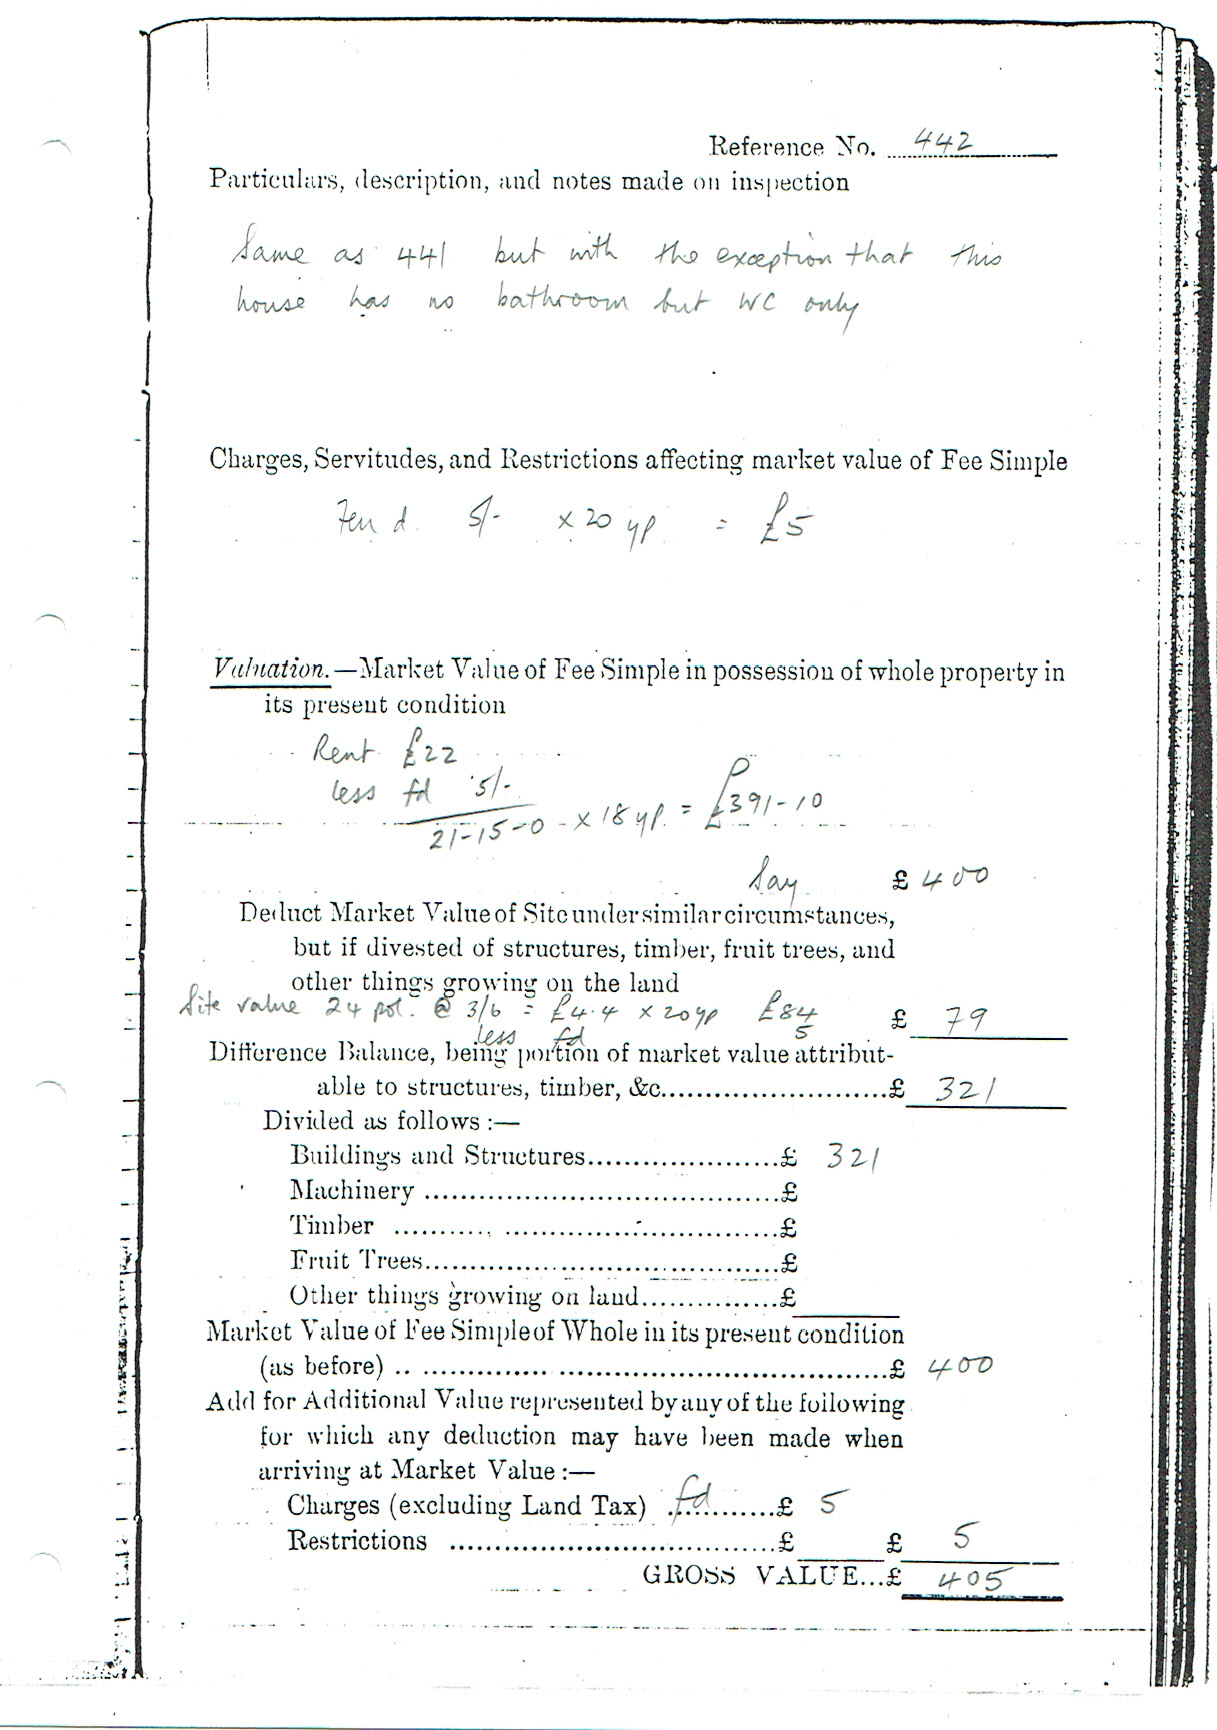 Reference No. 442
Particulars, description, and notes made on inspection
Same as 441 but with the exception that this
house has no bathroom but WC only
Charges, Servitudes, and Restrictions affecting market value of Fee Simple
Feu d. 5/- x 20 yp = £5
Valuation.—Market Value of Fee Simple in possession of whole property in
its present condition
Rent £22
less fd 5/-
21-15-0 x 18 yp. = £391-10
Say £ 400
Deduct Market Value of Site under similar circumstances,
but if divested of structures, timber, fruit trees, and
other things growing on the land
Site value 24 pol. @ 3/6 = £4.4 x 20 yp £84 £ 79
less fd 5
Difference Balance, being portion of market value attribut-
able to structures, timber, &c.........................£ 321
Divided as follows :—
Buildings and Structures.....................£ 321
Machinery .......................................£
Timber ...........................................£
Fruit Trees.......................................£
Other things growing on land...............£
Market Value of Fee Simple of Whole in its present condition
(as before) .. ....................................................£ 400
Add for Additional Value represented by any of the following
for which any deduction may have been made when
arriving at Market Value :—
Charges (excluding Land Tax) fd ..........£ 5
Restrictions .......................................£ £ 5
GROSS VALUE...£ 405